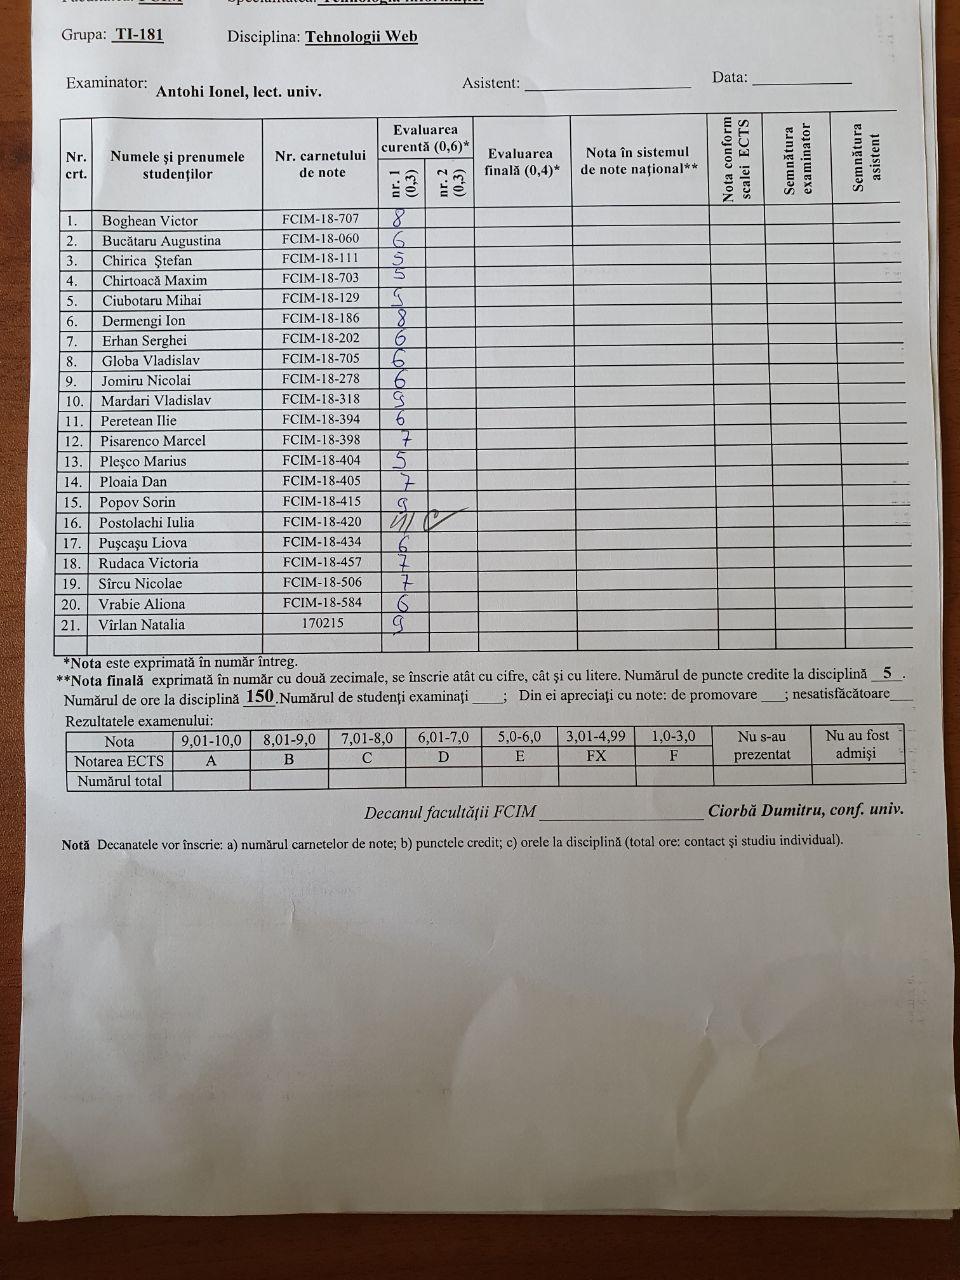 Grupa: TI-181 Disciplina: Tehnologii Web
Examinator: Antohi Ionel, lect. univ. Asistent: Data:
Nr. crt. Numele şi prenumele studenţilor Nr. carnetului de note Evaluarea curentă (0,6)* nr. 1 (0,3) nr. 2 (0,3) Evaluarea finală (0,4)* Nota în sistemul de note naţional** Nota conform scalei ECTS Semnătura examinator Semnătura asistent
1. Boghean Victor FCIM-18-707 8
2. Bucătaru Augustina FCIM-18-060 6
3. Chirica Ştefan FCIM-18-111 5
4. Chirtoacă Maxim FCIM-18-703 5
5. Ciubotaru Mihai FCIM-18-129 5
6. Dermengi Ion FCIM-18-186 8
7. Erhan Serghei FCIM-18-202 6
8. Globa Vladislav FCIM-18-705 6
9. Jomiru Nicolai FCIM-18-278 6
10. Mardari Vladislav FCIM-18-318 9
11. Peretean Ilie FCIM-18-394 6
12. Pisarenco Marcel FCIM-18-398 7
13. Pleşco Marius FCIM-18-404 5
14. Ploaia Dan FCIM-18-405 7
15. Popov Sorin FCIM-18-415 9
16. Postolachi Iulia FCIM-18-420
17. Puşcaşu Liova FCIM-18-434 6
18. Rudaca Victoria FCIM-18-457 7
19. Sîrcu Nicolae FCIM-18-506 7
20. Vrabie Aliona FCIM-18-584 6
21. Vîrlan Natalia 170215 9
*Nota este exprimată în număr întreg.
**Nota finală exprimată în număr cu două zecimale, se înscrie atât cu cifre, cât şi cu litere. Numărul de puncte credite la disciplină 5.
Numărul de ore la disciplină 150. Numărul de studenţi examinaţi ____; Din ei apreciaţi cu note: de promovare ___; nesatisfăcătoare___
Rezultatele examenului:
Nota 9,01-10,0 8,01-9,0 7,01-8,0 6,01-7,0 5,0-6,0 3,01-4,99 1,0-3,0 Nu s-au prezentat Nu au fost admişi
Notarea ECTS A B C D E FX F
Numărul total
Decanul facultăţii FCIM Ciorbă Dumitru, conf. univ.
Notă Decanatele vor înscrie: a) numărul carnetelor de note; b) punctele credit; c) orele la disciplină (total ore: contact şi studiu individual).